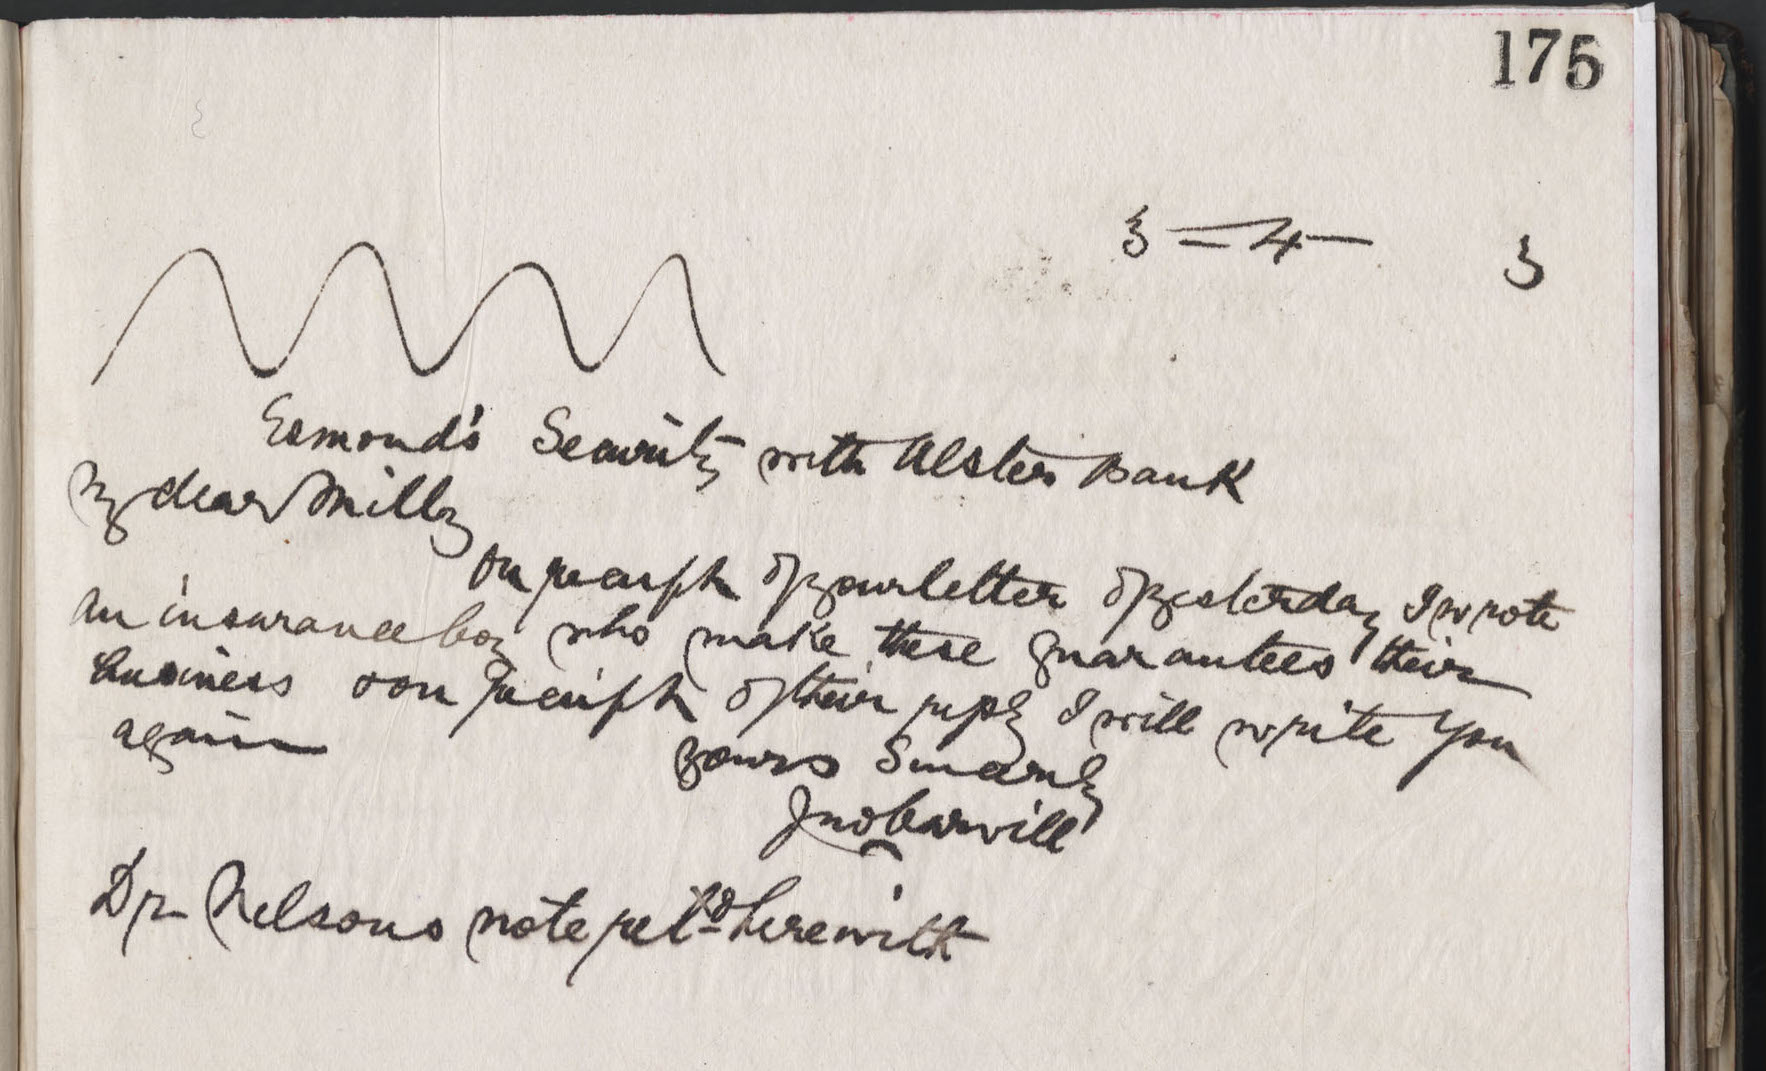 175
3 — 4 — 3
Esmond's Security with Ulster Bank
My dear Milly
On receipt of your letter of yesterday I wrote
an insurance Coy who make these guarantees their
business & on receipt of their reply I will write you
again
yours Sincerely
Jno Carvill
Dr Nelsons note retd herewith